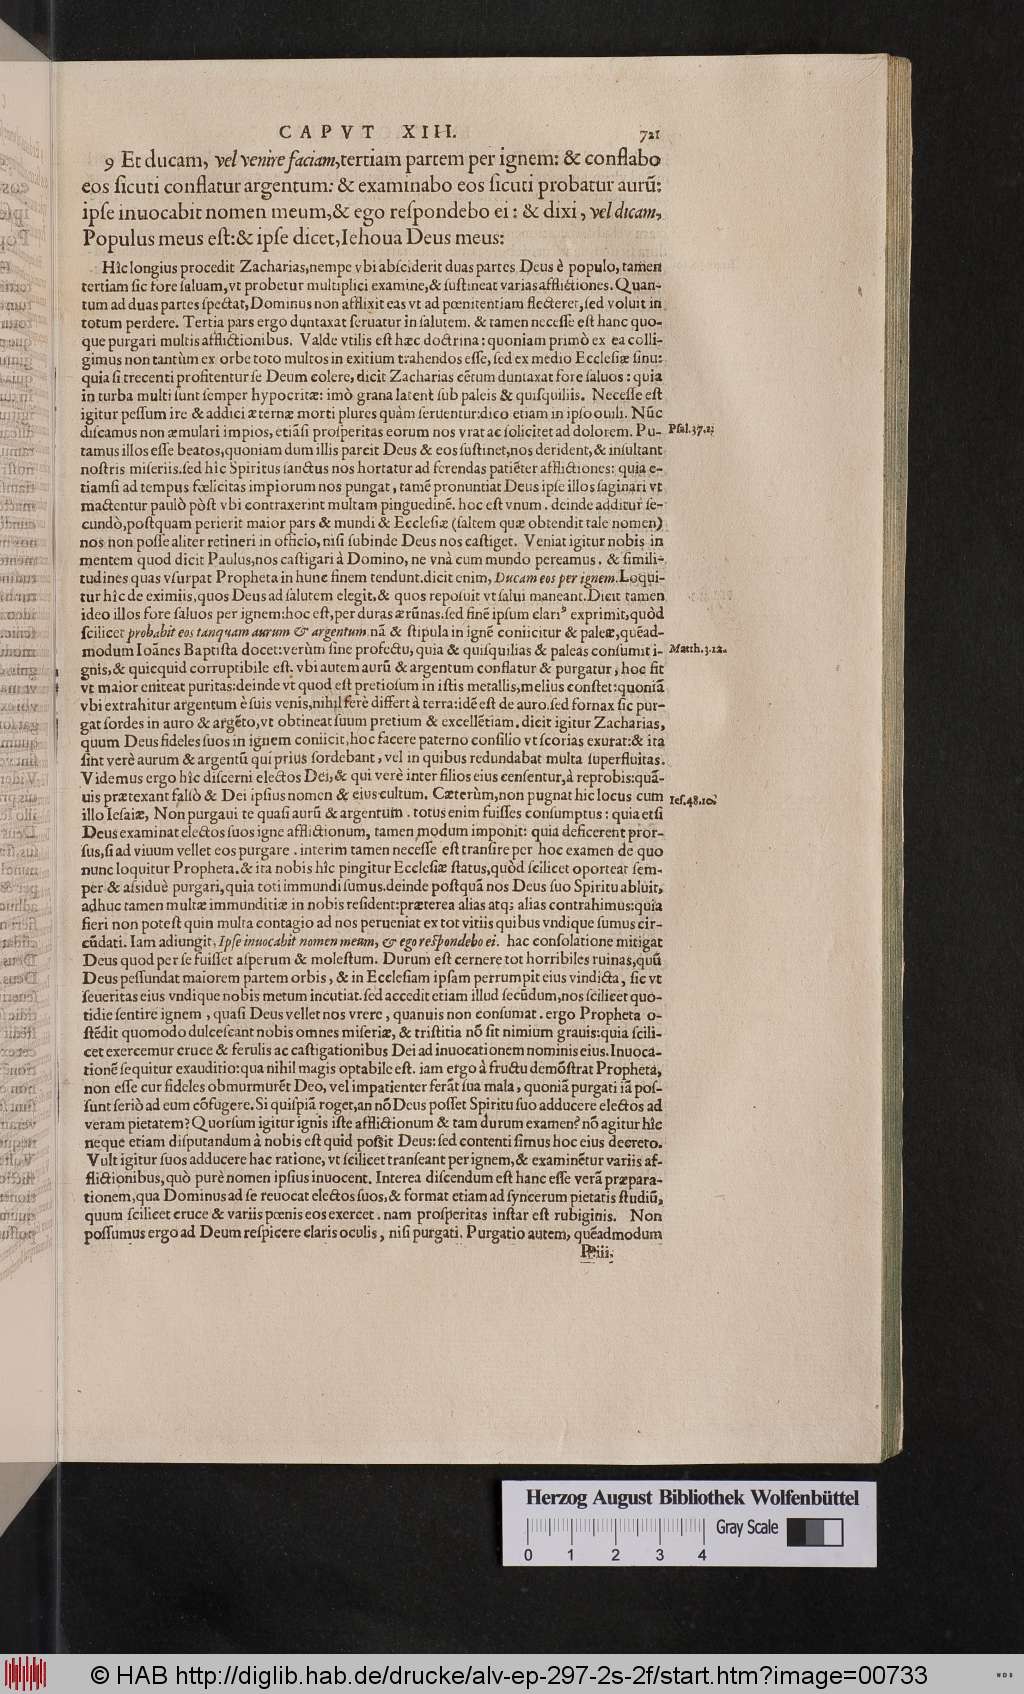 CAPVT XIII. 721
9 Et ducam, vel venire faciam, tertiam partem per ignem: & conflabo
eos ſicuti conflatur argentum: & examinabo eos ſicuti probatur aurū:
ipſe inuocabit nomen meum, & ego reſpondebo ei: & dixi, vel dicam,
Populus meus eſt: & ipſe dicet, Iehoua Deus meus:
Hîc longius procedit Zacharias, nempe vbi abſciderit duas partes Deus è populo, tamen
tertiam ſic fore ſaluam, vt probetur multiplici examine, & ſuſtineat varias afflictiones. Quan-
tum ad duas partes ſpectat, Dominus non afflixit eas vt ad pœnitentiam flecteret, ſed voluit in
totum perdere. Tertia pars ergo duntaxat ſeruatur in ſalutem. & tamen neceſſe eſt hanc quo-
que purgari multis afflictionibus. Valde vtilis eſt hæc doctrina: quoniam primò ex ea colli-
gimus non tantùm ex orbe toto multos in exitium trahendos eſſe, ſed ex medio Eccleſiæ ſinu:
quia ſi trecenti profitentur ſe Deum colere, dicit Zacharias cētum duntaxat fore ſaluos: quia
in turba multi ſunt ſemper hypocritæ: imò grana latent ſub paleis & quiſquiliis. Neceſſe eſt
igitur peſſum ire & addici æternæ morti plures quàm ſeruentur: dico etiam in ipſo ouili. Nūc
diſcamus non æmulari impios, etiāſi proſperitas eorum nos vrat ac ſolicitet ad dolorem. Pu- Pſal.37.1.
tamus illos eſſe beatos, quoniam dum illis parcit Deus & eos ſuſtinet, nos derident, & inſultant
noſtris miſeriis. ſed hîc Spiritus ſanctus nos hortatur ad ferendas patiēter afflictiones: quia e-
tiamſi ad tempus fœlicitas impiorum nos pungat, tamē pronuntiat Deus ipſe illos ſaginari vt
mactentur paulò pòſt vbi contraxerint multam pinguedinē. hoc eſt vnum. deinde additur ſe-
cundò, poſtquam perierit maior pars & mundi & Eccleſiæ (ſaltem quæ obtendit tale nomen)
nos non poſſe aliter retineri in officio, niſi ſubinde Deus nos caſtiget. Veniat igitur nobis in
mentem quod dicit Paulus, nos caſtigari à Domino, ne vnà cum mundo pereamus. & ſimili-
tudines quas vſurpat Propheta in hunc finem tendunt. dicit enim, Ducam eos per ignem. Loqui-
tur hîc de eximiis, quos Deus ad ſalutem elegit, & quos repoſuit vt ſalui maneant. Dicit tamen
ideo illos fore ſaluos per ignem: hoc eſt, per duras ærūnas. ſed finē ipſum clariꝰ exprimit, quòd
ſcilicet probabit eos tanquam aurum & argentum nā & ſtipula in ignē coniicitur & paleæ, quēad-
modum Ioānes Baptiſta docet: verùm ſine profectu, quia & quiſquilias & paleas conſumit i- Matth.3.12.
gnis, & quicquid corruptibile eſt. vbi autem aurū & argentum conflatur & purgatur, hoc fit
vt maior eniteat puritas: deinde vt quod eſt pretioſum in iſtis metallis, melius conſtet: quoniā
vbi extrahitur argentum è ſuis venis, nihil ferè differt à terra: idē eſt de auro. ſed fornax ſic pur-
gat ſordes in auro & argēto, vt obtineat ſuum pretium & excellētiam. dicit igitur Zacharias,
quum Deus fideles ſuos in ignem coniicit, hoc facere paterno conſilio vt ſcorias exurat: & ita
ſint verè aurum & argentū qui prius ſordebant, vel in quibus redundabat multa ſuperfluitas.
Videmus ergo hîc diſcerni electos Dei, & qui verè inter filios eius cenſentur, à reprobis: quā-
uis prætexant falſò & Dei ipſius nomen & eius cultum. Cæterùm, non pugnat hic locus cum Ieſ.48.10.
illo Ieſaiæ, Non purgaui te quaſi aurū & argentum. totus enim fuiſſes conſumptus: quia etſi
Deus examinat electos ſuos igne afflictionum, tamen modum imponit: quia deficerent pror-
ſus, ſi ad viuum vellet eos purgare. interim tamen neceſſe eſt tranſire per hoc examen de quo
nunc loquitur Propheta. & ita nobis hîc pingitur Eccleſiæ ſtatus, quòd ſcilicet oporteat ſem-
per & aſsiduè purgari, quia toti immundi ſumus. deinde poſtquā nos Deus ſuo Spiritu abluit,
adhuc tamen multæ immunditiæ in nobis reſident: præterea alias atq; alias contrahimus: quia
fieri non poteſt quin multa contagio ad nos perueniat ex tot vitiis quibus vndique ſumus cir-
cūdati. Iam adiungit, Ipſe inuocabit nomen meum, & ego reſpondebo ei. hac conſolatione mitigat
Deus quod per ſe fuiſſet aſperum & moleſtum. Durum eſt cernere tot horribiles ruinas, quū
Deus peſſundat maiorem partem orbis, & in Eccleſiam ipſam perrumpit eius vindicta, ſic vt
ſeueritas eius vndique nobis metum incutiat. ſed accedit etiam illud ſecūdum, nos ſcilicet quo-
tidie ſentire ignem, quaſi Deus vellet nos vrere, quanuis non conſumat. ergo Propheta o-
ſtēdit quomodo dulceſcant nobis omnes miſeriæ, & triſtitia nō ſit nimium grauis: quia ſcili-
cet exercemur cruce & ferulis ac caſtigationibus Dei ad inuocationem nominis eius. Inuoca-
tionē ſequitur exauditio: qua nihil magis optabile eſt. iam ergo à fructu demōſtrat Propheta,
non eſſe cur fideles obmurmurēt Deo, vel impatienter ferāt ſua mala, quoniā purgati iā poſ-
ſunt ſeriò ad eum cōfugere. Si quiſpiā roget, an nō Deus poſſet Spiritu ſuo adducere electos ad
veram pietatem? Quorſum igitur ignis iſte afflictionum & tam durum examen? nō agitur hîc
neque etiam diſputandum à nobis eſt quid poſſit Deus: ſed contenti ſimus hoc eius decreto.
Vult igitur ſuos adducere hac ratione, vt ſcilicet tranſeant per ignem, & examinētur variis af-
flictionibus, quò purè nomen ipſius inuocent. Interea diſcendum eſt hanc eſſe verā præpara-
tionem, qua Dominus ad ſe reuocat electos ſuos, & format etiam ad ſyncerum pietatis ſtudiū,
quum ſcilicet cruce & variis pœnis eos exercet. nam proſperitas inſtar eſt rubiginis. Non
poſſumus ergo ad Deum reſpicere claris oculis, niſi purgati. Purgatio autem, quēadmodum
Herzog August Bibliothek Wolfenbüttel
Gray Scale
0 1 2 3 4
© HAB http://diglib.hab.de/drucke/alv-ep-297-2s-2f/start.htm?image=00733